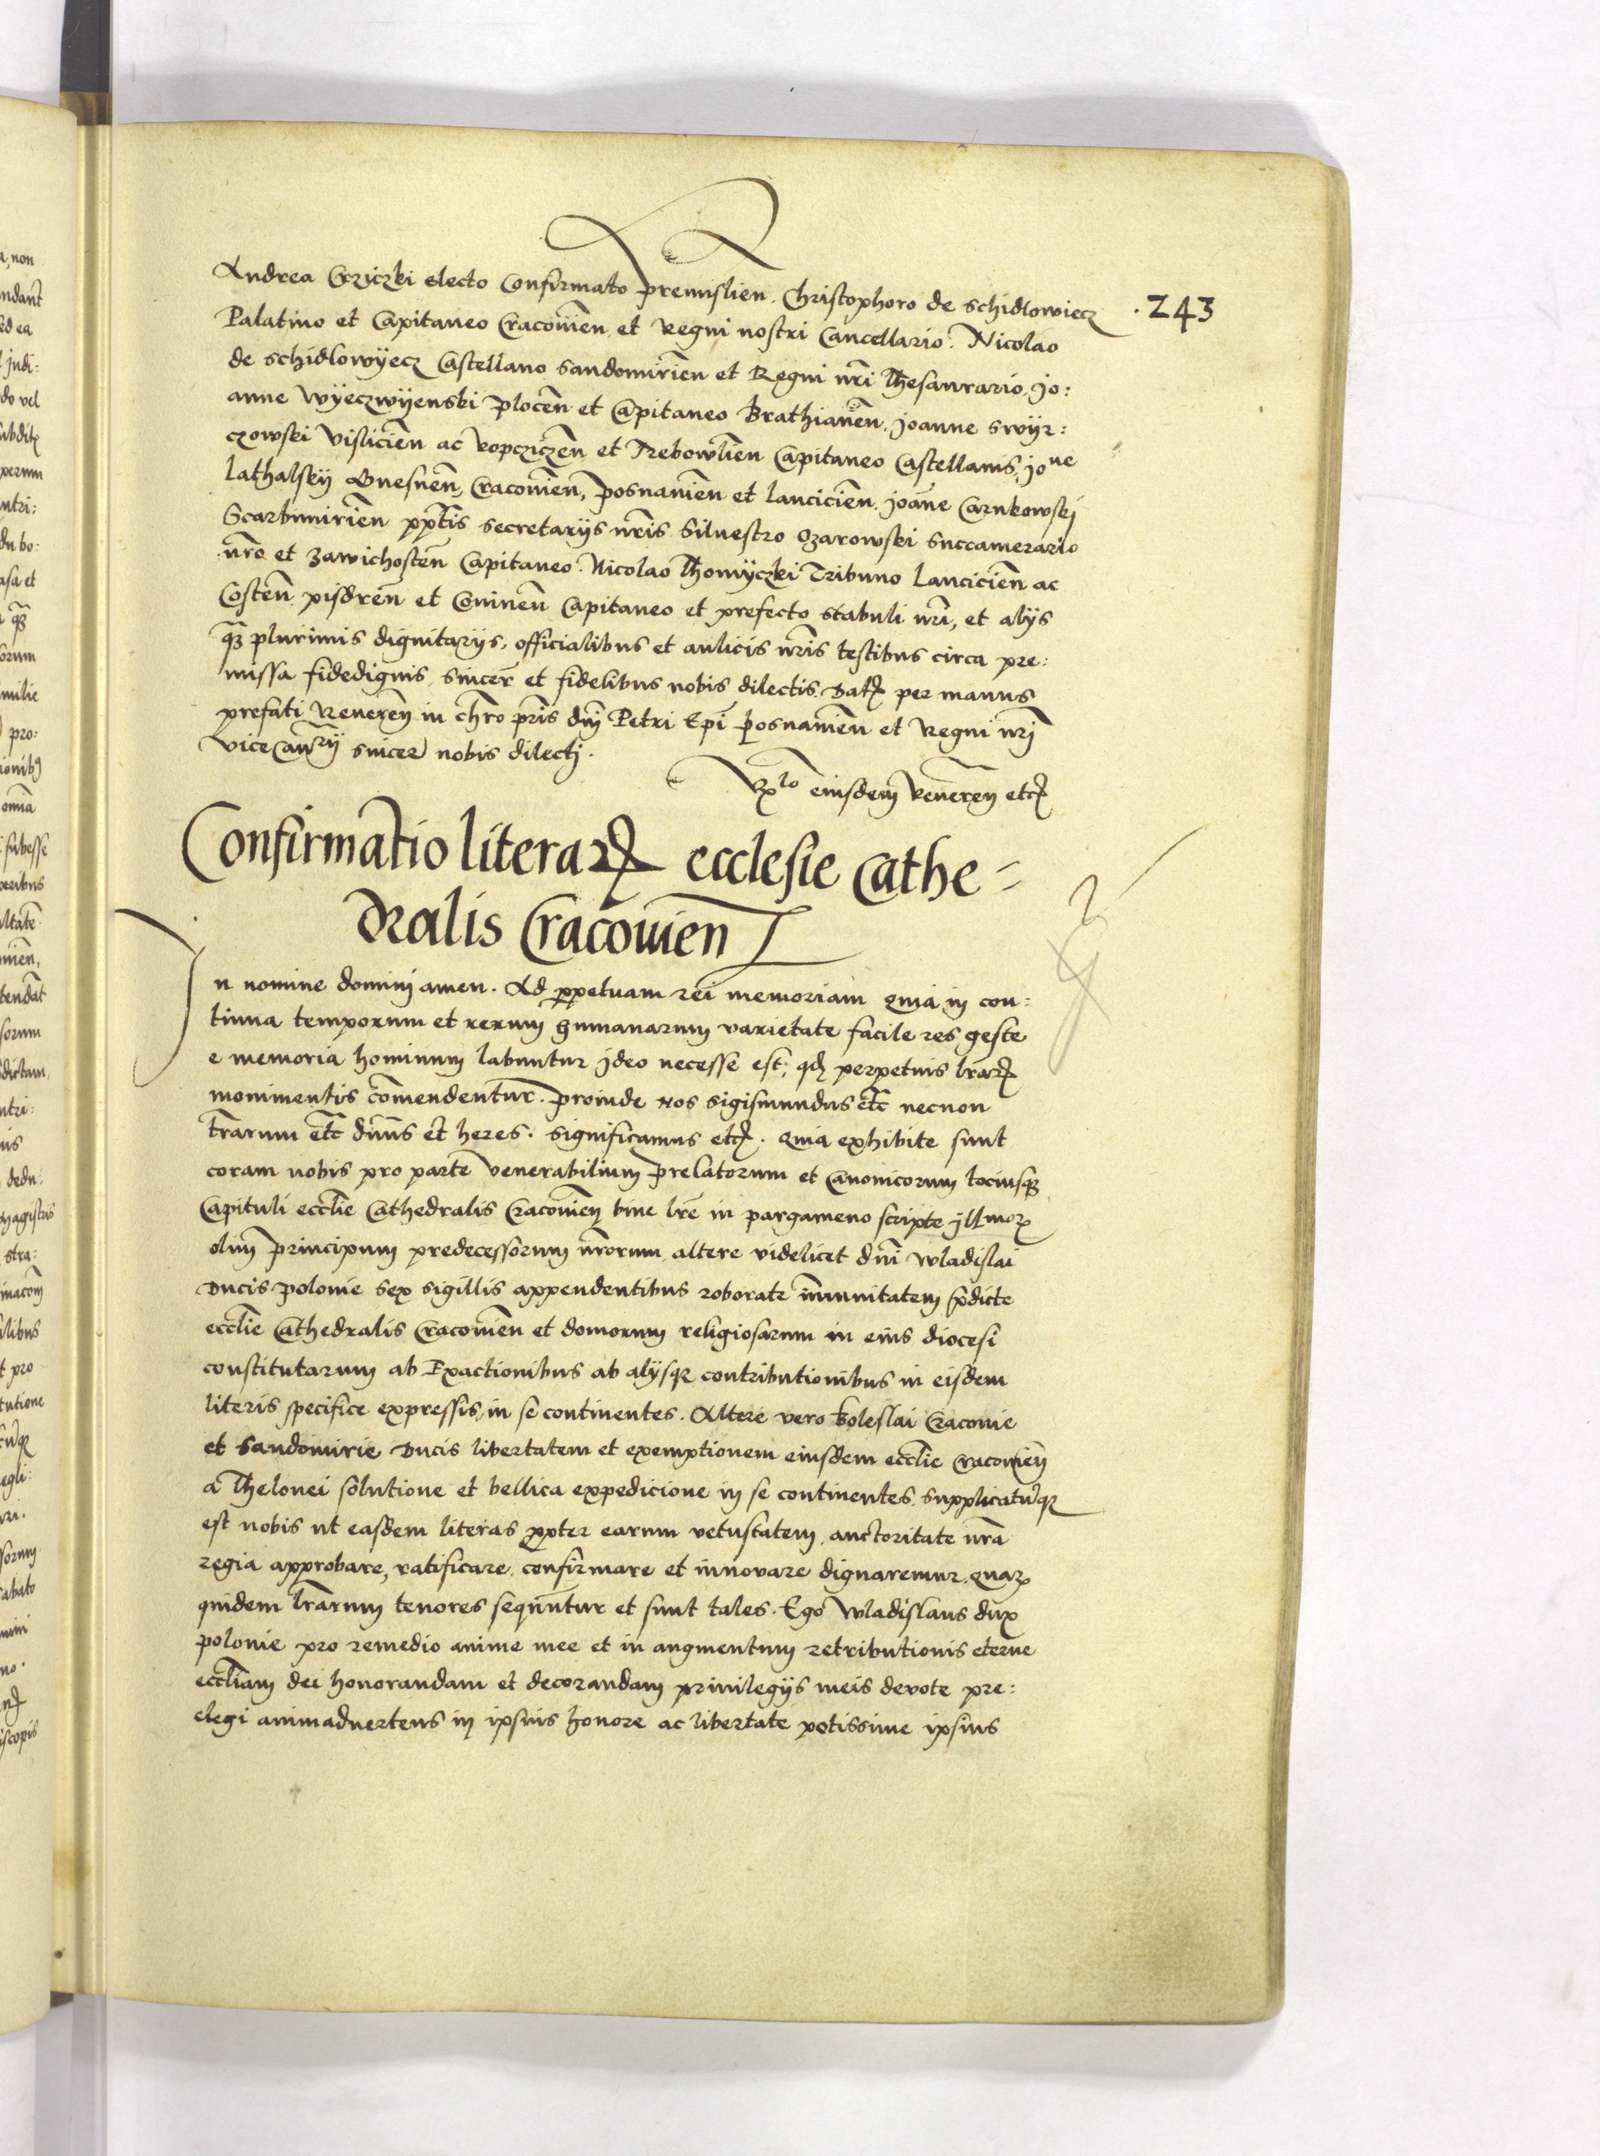 Andrea Crziczki electo Confirmato Premislien. Christophoro de Schidlowiecz
· 243
Palatino et Capitaneo Cracovien et Regni nostri Cancellario. Nicolao
de Schidlowÿecz Castellano Sandomirien et Regni nri Thesaurario, Jo:
anne Wÿeczwÿenski Plocen et Capitaneo Brathianen. Joanne Swÿr:
czowski Vislicien ac Ropczიczen et Trebowlien Capitaneo Castellanis, Jone
Lathalskÿ Gnesnen, Cracovien, Posnanien et Lancicien. Joane Carnkowski
Scarbimirien pptis Secretariis nris Silvestro Ozarowski Succamerario
nro et Zawichosten Capitaneo. Nicolao Thomÿczki Tribuno Lancicien ac
Costen pisdren et Coninen Capitaneo et prefecto stabuli nri, et alÿs
q3 plurimis dignitariis, officialibus et aulicis nris testibus circa pre:
missa fidedignis, sincer et fidelibus nobis dilectis. Dat per manus
prefati Reveren in chro pris dni Petri Epi Posnanien et Regni nri
Vice Canrÿ sincer nobis dilecti.
Rlo eiusdem Reveren etc
Confirmatio literar ecclesie Cathe=
dralis Cracovien
In nomine domini amen. Ad perpetuam rei memoriam quia in con:
tinua temporum et rerum humanarum varietate facile res geste
e memoria hominum labuntur ideo necesse est, qd perpetuis lrar
monimentis comendentur. Proinde nos Sigismundus etc necnon
trarum etc dnus et heres. Significamus etc. quia exhibite sunt
coram nobis pro parte venerabilium prelatorum et Canonicorum tociusq
Capituli ecclie Cathedralis Cracovien bine lre in pargameno scripte Illmor
olim principum predecessorum nrorum altere videlicet dni Wladislai
Ducis Polonie sex sigillis appendentibus roborate imunitatem pdicte
ecclie Cathedralis Cracovien et domorum religiosarum in eius diocesi
constitutarum ab Exactionibus ab alÿsq contributionibus in eisdem
literis specifice expressis, in se continentes. Altere vero Boleslai Cracovie
et Sandomirie Ducis libertatem et exemptionem eiusdem ecclie Cracovien
a Thelonei solutione et bellica expedicione in se continentes. Supplicatuq
est nobis ut easdem literas ppter earum vetustatem, auctoritate nra
regia approbare, ratificare, confirmare et innovare dignaremur, quar
quidem lrarum tenores sequuntur et sunt tales. Ego Wladislaus dux
polonie pro remedio anime mee et in augmentum retributionis eterne
eccliam dei honorandam et decorandam privilegÿs meis devote pre:
elegi animadvertens in ipsius honore ac libertate potissime ipsius